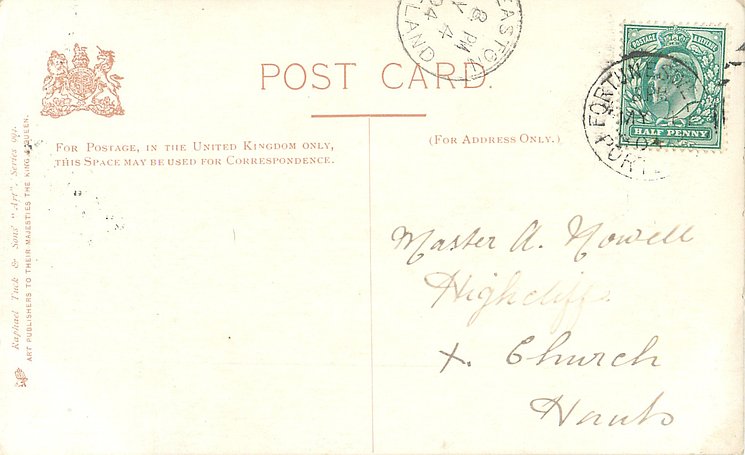 EASTON
8 PM
MY 4
04
LAND
POST CARD.
FORTUNES
MY
04
PORT
POSTAGE & REVENUE
HALF PENNY
FOR POSTAGE, IN THE UNITED KINGDOM ONLY,
THIS SPACE MAY BE USED FOR CORRESPONDENCE.
(FOR ADDRESS ONLY.)
Raphael Tuck & Sons' "Art". Series 991.
ART PUBLISHERS TO THEIR MAJESTIES THE KING & QUEEN.
Master A. Nowell
Highcliffe
X. Church
Hants